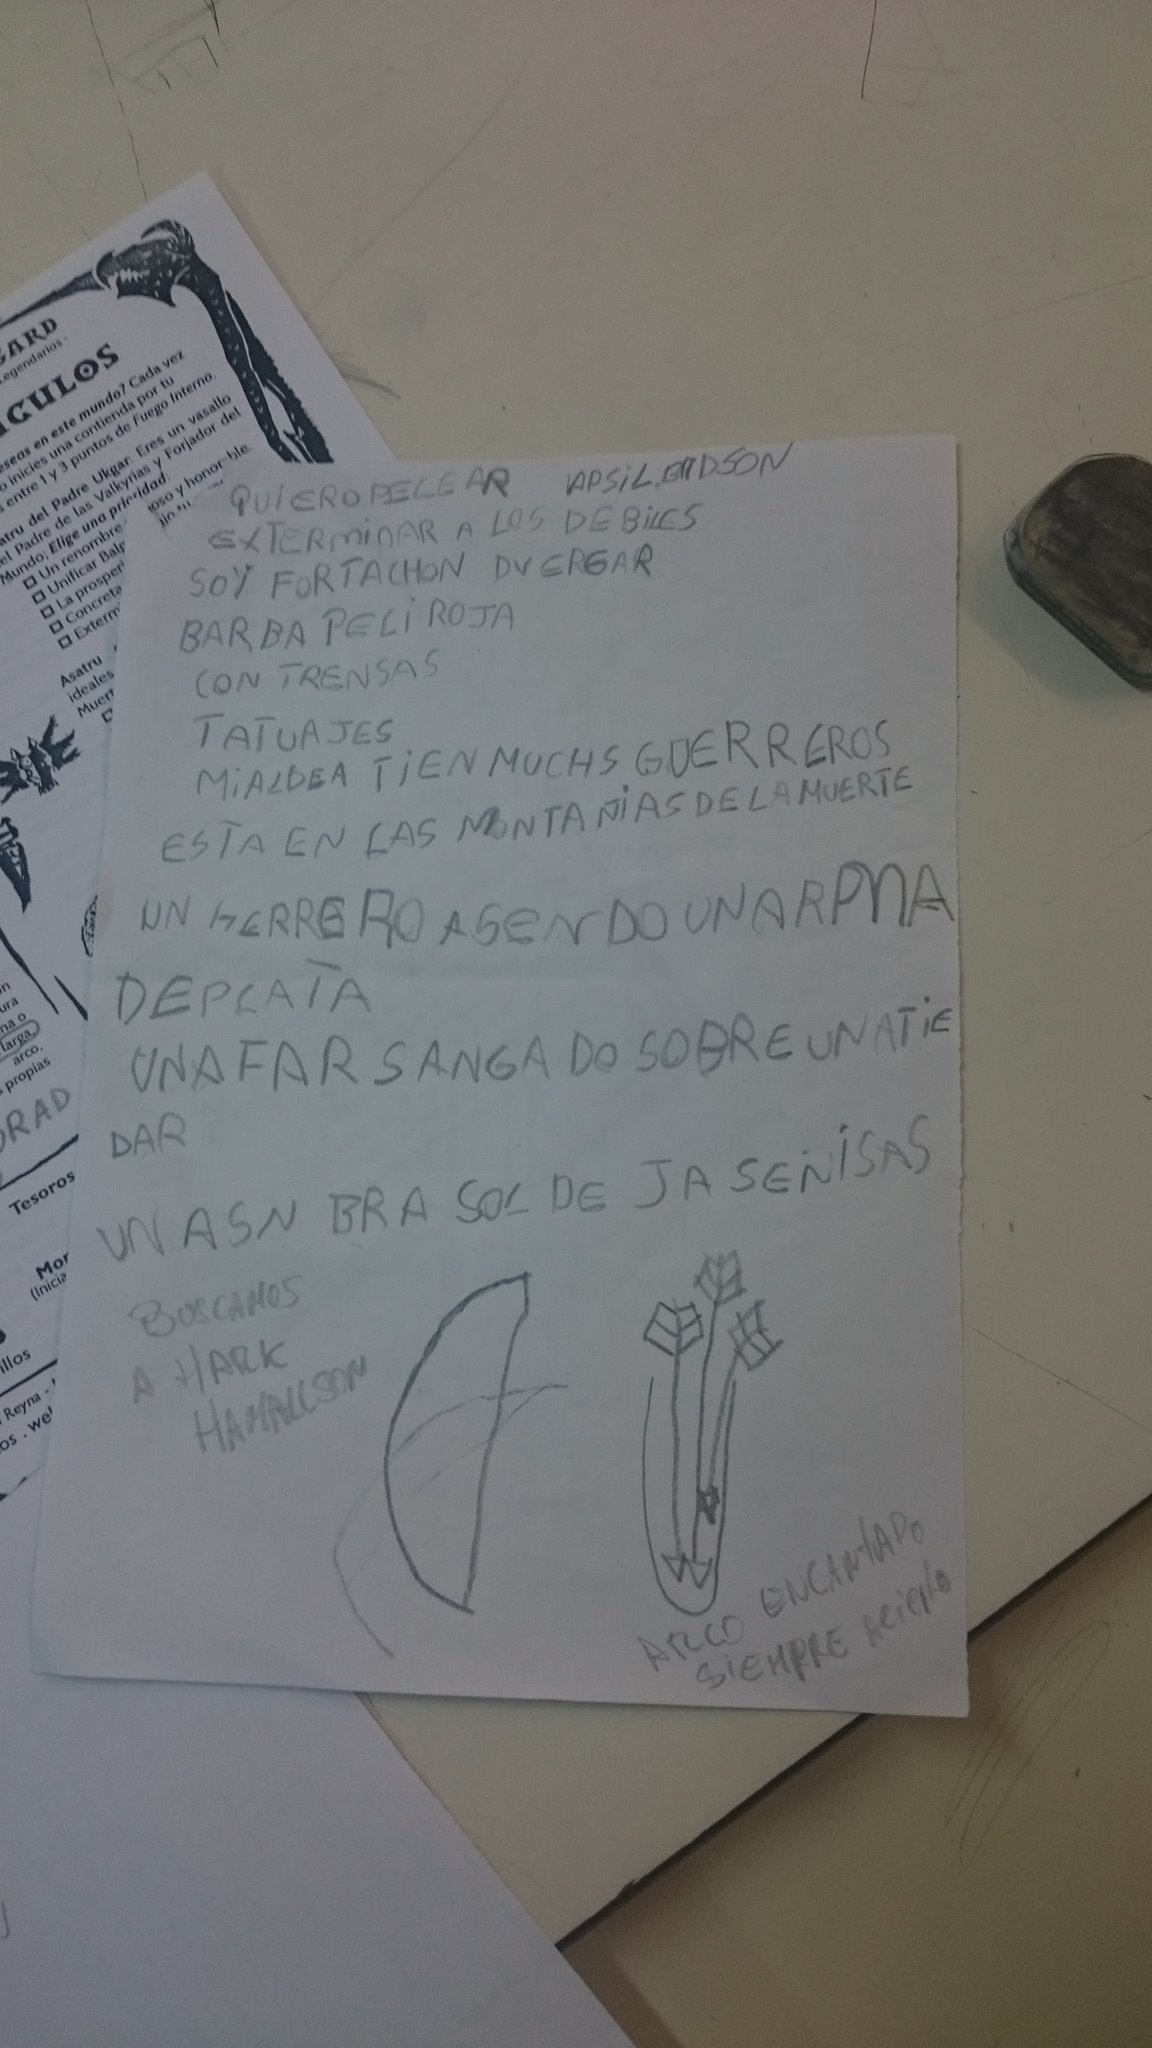 GARD
Legendarios -
CULOS
deseas en este mundo? Cada vez
o inicies una contienda por tu
entre 1 y 3 puntos de Fuego Interno.
atru del Padre Ukgar: Eres un vasallo
el Padre de las Valkyrias y Forjador del
Mundo; Elige una prioridad:
Un renombre oso y honorable.
Unificar
La
Concreta
Exterm
Asatru
ideales
Muert
larga,
arco.
propias
ORAD
Tesoros
Mor
(Inicia
illos
Reyna -
QUIERO PELEAR
EXTERMINAR A LOS DEBILES
SOY FORTACHON DVERGAR
BARBA PELIROJA
CON TRENSAS
TATUAJES
MI ALDEA TIEN MUCHS GUERREROS
ESTA EN LAS MONTAÑIAS DE LA MUERTE
UN HERRERO ASENDO UN ARPMA
DE PLATA
UNA FAR SANGADO SOBRE UNA TIE
DAR
UN ASN BRA SOL DE JA SENISAS
BUSCAMOS
A HARK
HAMALLSON
ARCO ENCANTADO
SIEMPRE ACIERTO